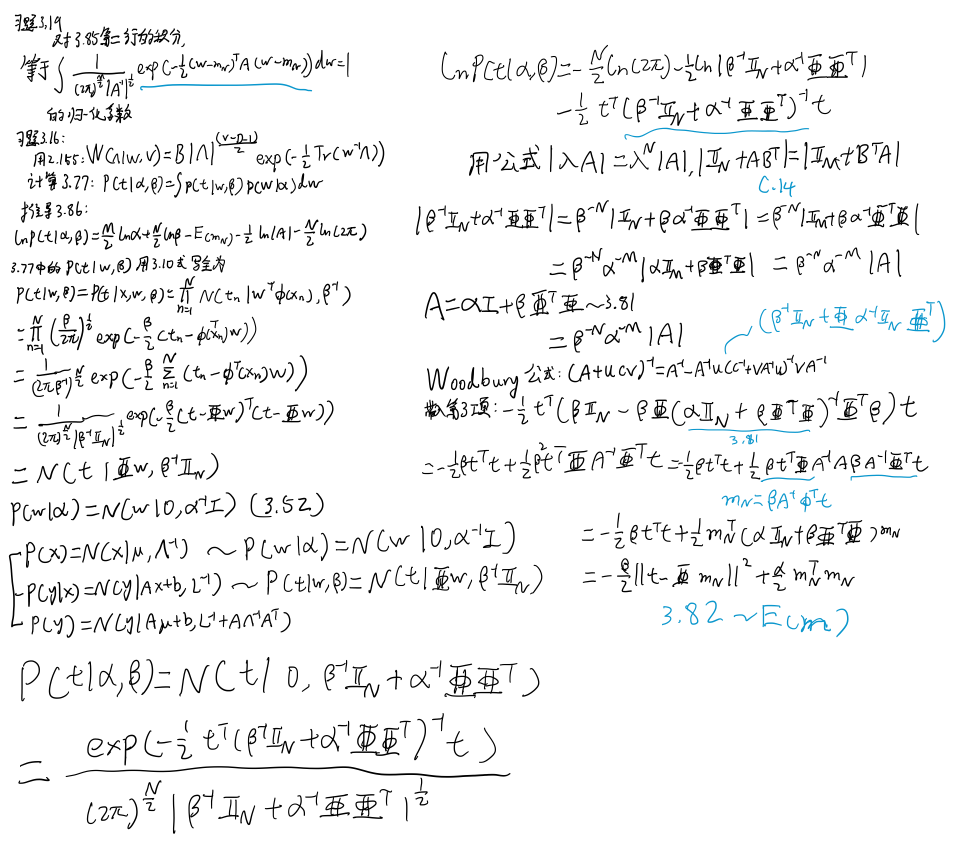 习题3.19
对3.85第二行的积分,
等于 ∫ 1/((2π)^{M/2}|A^{-1}|^{1/2}) exp(-1/2(w-m_N)^T A(w-m_N))dw=1
的归一化系数
习题3.16:
用2.155: W(Λ|w,v)=B|Λ|^{(v-D-1)/2} exp(-1/2 Tr(w^{-1}Λ))
计算3.77: P(t|α,β)=∫P(t|w,β)P(w|α)dw
推导3.86:
lnP(t|α,β)=M/2 lnα+N/2 lnβ-E(m_N)-1/2 ln|A|-N/2 ln(2π)
3.77中的 P(t|w,β) 用3.10式 写为
P(t|w,β)=P(t|x,w,β)=∏_{n=1}^{N} N(t_n|w^Tφ(x_n),β^{-1})
=∏_{n=1}^{N} (β/2π)^{1/2} exp(-β/2(t_n-φ^T(x_n)w))
= 1/(2πβ^{-1})^{N/2} exp(-β/2 ∑_{n=1}^{N}(t_n-φ^T(x_n)w))
= 1/((2π)^{N/2}|β^{-1}I_N|^{1/2}) exp(-β/2(t-Φw)^T(t-Φw))
= N(t|Φw, β^{-1}I_N)
P(w|α)=N(w|0,α^{-1}I) (3.52)
P(x)=N(x|μ,Λ^{-1}) ~ P(w|α)=N(w|0,α^{-1}I)
P(y|x)=N(y|Ax+b,L^{-1}) ~ P(t|w,β)=N(t|Φw,β^{-1}I_N)
P(y)=N(y|Aμ+b,L^{-1}+AΛ^{-1}A^T)
P(t|α,β)=N(t|0, β^{-1}I_N+α^{-1}ΦΦ^T)
= exp(-1/2 t^T(β^{-1}I_N+α^{-1}ΦΦ^T)^{-1}t) / ((2π)^{N/2}|β^{-1}I_N+α^{-1}ΦΦ^T|^{1/2})
lnP(t|α,β)=-N/2 ln(2π)-1/2 ln|β^{-1}I_N+α^{-1}ΦΦ^T|
-1/2 t^T(β^{-1}I_N+α^{-1}ΦΦ^T)^{-1}t
用公式|λA|=λ^N|A|,|I_N+AB^T|=|I_M+B^TA|
C.14
|β^{-1}I_N+α^{-1}ΦΦ^T|=β^{-N}|I_N+βα^{-1}ΦΦ^T|=β^{-N}|I_M+βα^{-1}Φ^TΦ|
=β^{-N}α^{-M}|αI_M+βΦ^TΦ| =β^{-N}α^{-M}|A|
A=αI+βΦ^TΦ~3.81
=β^{-N}α^{-M}|A|
(β^{-1}I_N+Φα^{-1}I_NΦ^T)
Woodbury公式: (A+UCV)^{-1}=A^{-1}-A^{-1}U(C^{-1}+VA^{-1}U)^{-1}VA^{-1}
第3项: -1/2 t^T(βI_N-βΦ(αI_N+βΦ^TΦ)^{-1}Φ^Tβ)t
3.81
=-1/2βt^Tt+1/2β^2t^TΦA^{-1}Φ^Tt=-1/2βt^Tt+1/2βt^TΦA^{-1}AβA^{-1}Φ^Tt
m_N=βA^{-1}φ^Tt
=-1/2βt^Tt+1/2m_N^T(αI_N+βΦ^TΦ)m_N
=-β/2||t-Φm_N||^2+α/2 m_N^Tm_N
3.82~E(m)